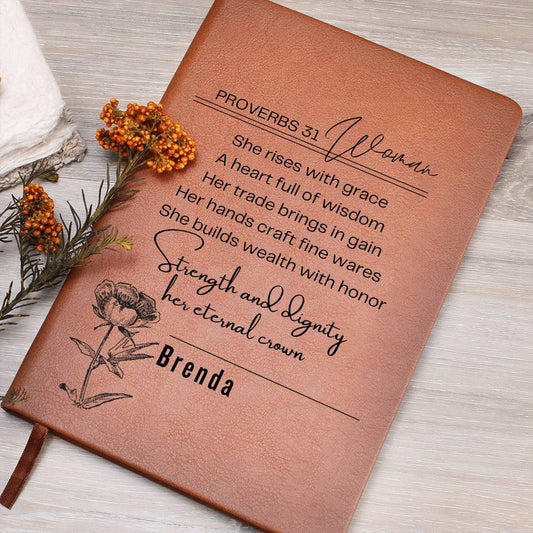 PROVERBS 31 Woman
She rises with grace
A heart full of wisdom
Her trade brings in gain
Her hands craft fine wares
She builds wealth with honor
Strength and dignity
her eternal crown
Brenda